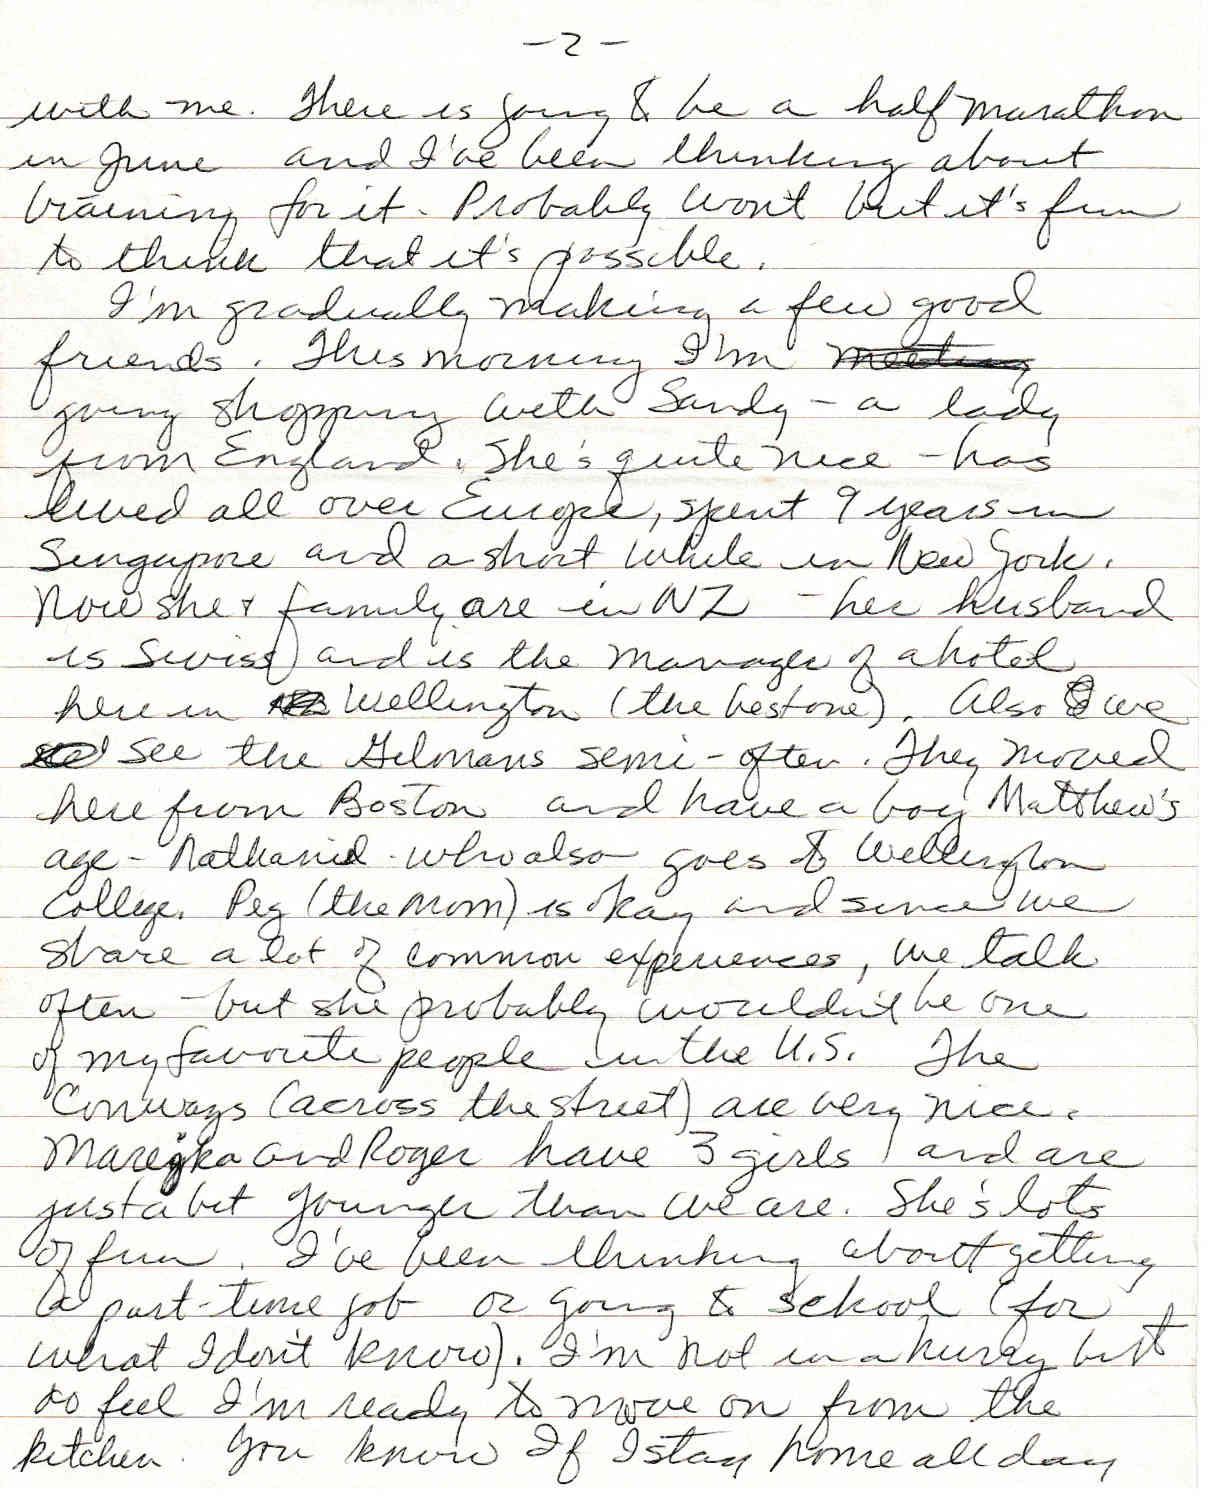 - 2 -
with me. There is going to be a half marathon
in June and I've been thinking about
training for it. Probably won't but it's fun
to think that it's possible.
I'm gradually making a few good
friends. This morning I'm meeting
going shopping with Sandy - a lady
from England. She's quite nice - has
lived all over Europe, spent 9 years in
Singapore and a short while in New York.
Now she & family are in NZ - her husband
is Swiss and is the manager of a hotel
here in Wellington (the best one). Also we
see the Gilmans semi-often. They moved
here from Boston and have a boy Matthew's
age - Nathaniel - who also goes to Wellington
College. Peg (the Mom) is okay and since we
share a lot of common experiences, we talk
often - but she probably wouldn't be one
of my favorite people in the U.S. The
Conways (across the street) are very nice.
Marejka and Roger have 3 girls and are
just a bit younger than we are. She's lots
of fun. I've been thinking about getting
a part-time job or going to school (for
what I don't know). I'm not in a hurry but
do feel I'm ready to move on from the
kitchen. You know If I stay home all day